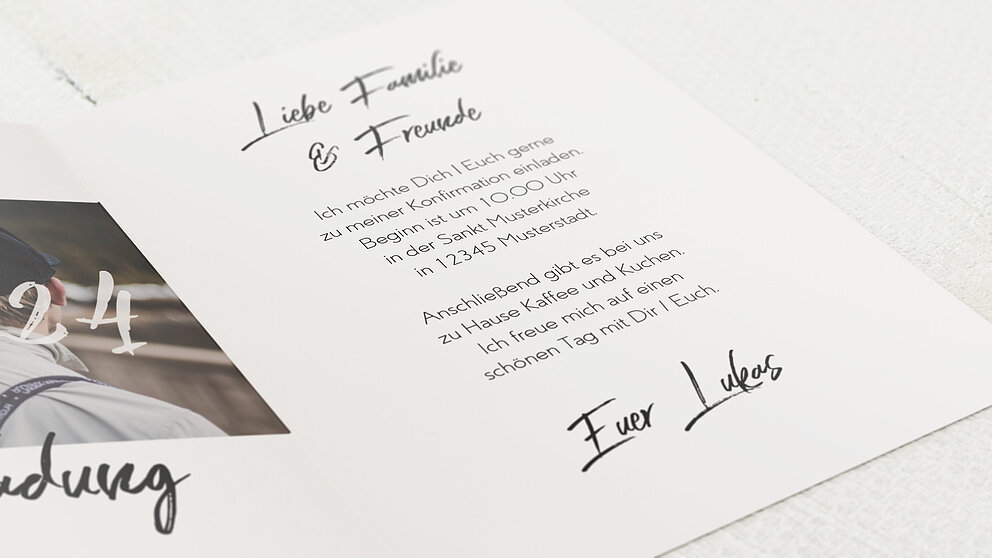 Liebe Familie
& Freunde
Ich möchte Dich | Euch gerne
zu meiner Konfirmation einladen.
Beginn ist um 10.00 Uhr
in der Sankt Musterkirche
in 12345 Musterstadt.
Anschließend gibt es bei uns
zu Hause Kaffee und Kuchen.
Ich freue mich auf einen
schönen Tag mit Dir | Euch.
Euer Lukas
24